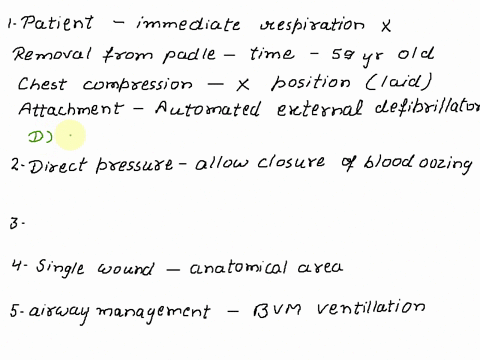 1. Patient - immediate respiration X
Removal from padle - time - 59 yr old
Chest compression - X position (laid)
Attachment - Automated external defibrillator
D) .
2. Direct pressure - allow closure of blood oozing
3.
4. Single wound - anatomical area
5. airway management - BVM ventillation